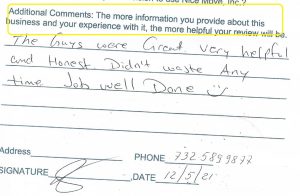 Additional Comments: The more information you provide about this
business and your experience with it, the more helpful your review will be.
The Guys were Great very helpful
and Honest Didn't waste Any
time Job well Done
Address
PHONE 732 589 9877
SIGNATURE DATE 12/5/21